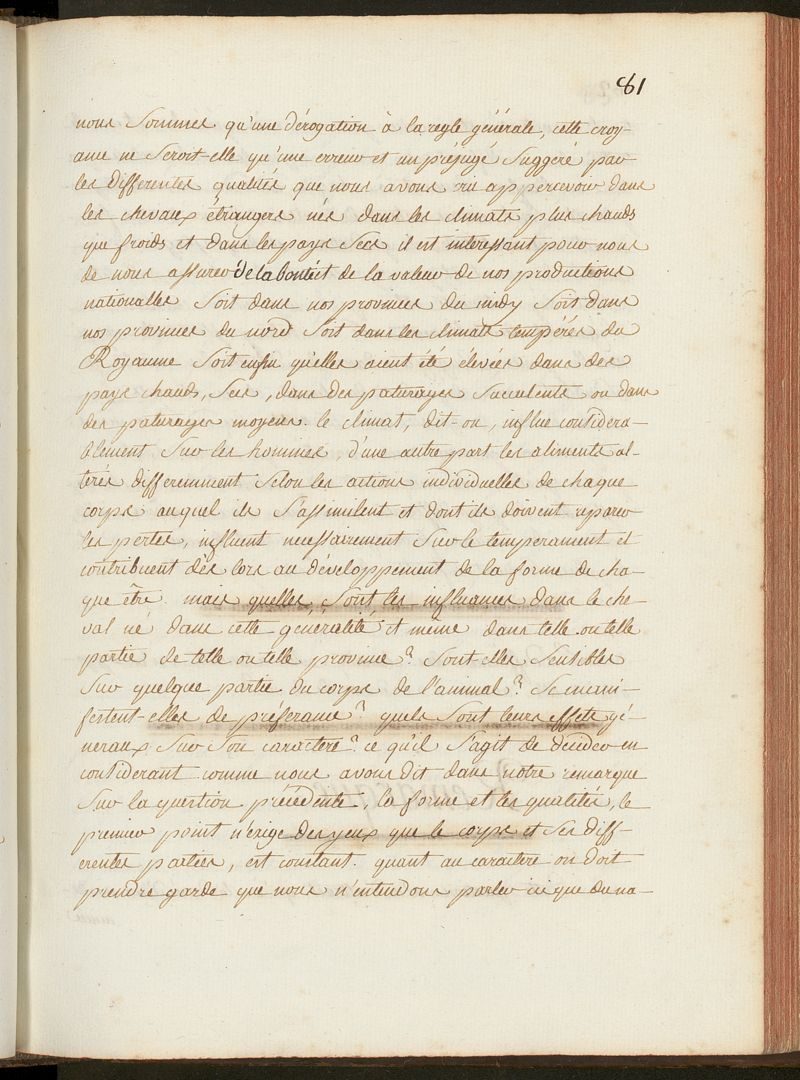 81
nous Sommes qu'une dérogation à la regle générale, cette croy-
ance ne Seroit-elle qu'une erreur et un préjugé Suggeré par
les differentes qualités que nous avons appercevoir dans
les chevaux étrangers nés dans les climats plus chauds
que froids et dans les pays Secs il est interessant pour nous
de nous assurer de la bonté et de la valeur de nos productions
nationalles Soit dans nos provinces du midy Soit dans
nos provinces du nord Soit dans les climats tempérés du
Royaume Soit enfin qu'elles aient été élevées dans des
pays chauds, Secs, dans des paturages Succulents ou dans
des paturages moyens. le climat, dit-on, influe considera-
blement Sur les hommes, d'une autre part les aliments al-
terés differemment Selon les actions individuelles de chaque
corps auquel ils S'assimilent et dont ils doivent reparer
les pertes, influent necessairement Sur le temperament et
contribuent dès lors au développement de la forme de cha-
que être. mais quelles Sont les influances dans le che-
val né dans cette generalité et même dans telle ou telle
partie de telle ou telle province? Sont-elles Sensibles
Sur quelque partie du corps de l'animal? Se mani-
festent-elles de préferance? quels Sont leurs effets gé-
neraux Sur Son caractere? ce qu'il S'agit de decider en
considerant comme nous avons dit dans notre remarque
Sur la question précedente, la forme et les qualités, le
premier point n'exige des yeux que le corps et Ses diff-
erentes parties, est constant. quant au caractere on doit
prendre garde que nous n'entendons parler ici que du na-